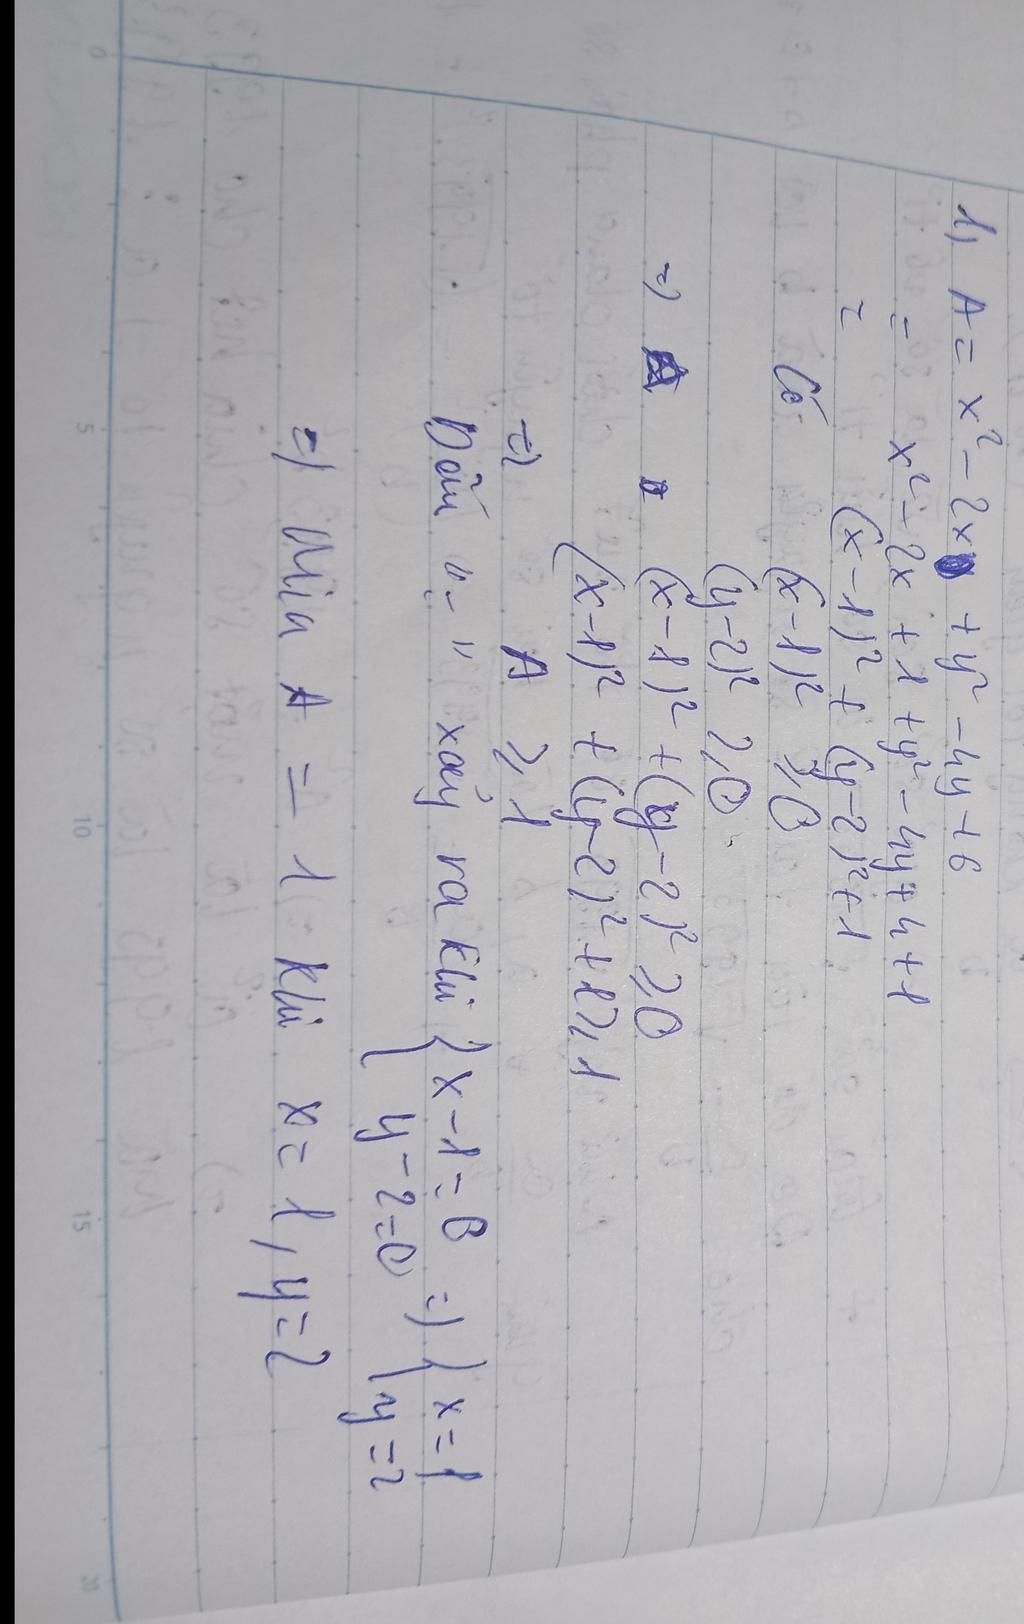 1, A = x² - 2x + y² - 4y + 6
= x² - 2x + 1 + y² - 4y + 4 + 1
= (x-1)² + (y-2)² + 1
Có (x-1)² ≥ 0
(y-2)² ≥ 0
=> (x-1)² + (y-2)² ≥ 0
(x-1)² + (y-2)² + 1 ≥ 1
=> A ≥ 1
Dấu "=" xảy ra khi { x - 1 = 0 => { x = 1
{ y - 2 = 0 { y = 2
=> Min A = 1 khi x = 1, y = 2
0 5 10 15 20